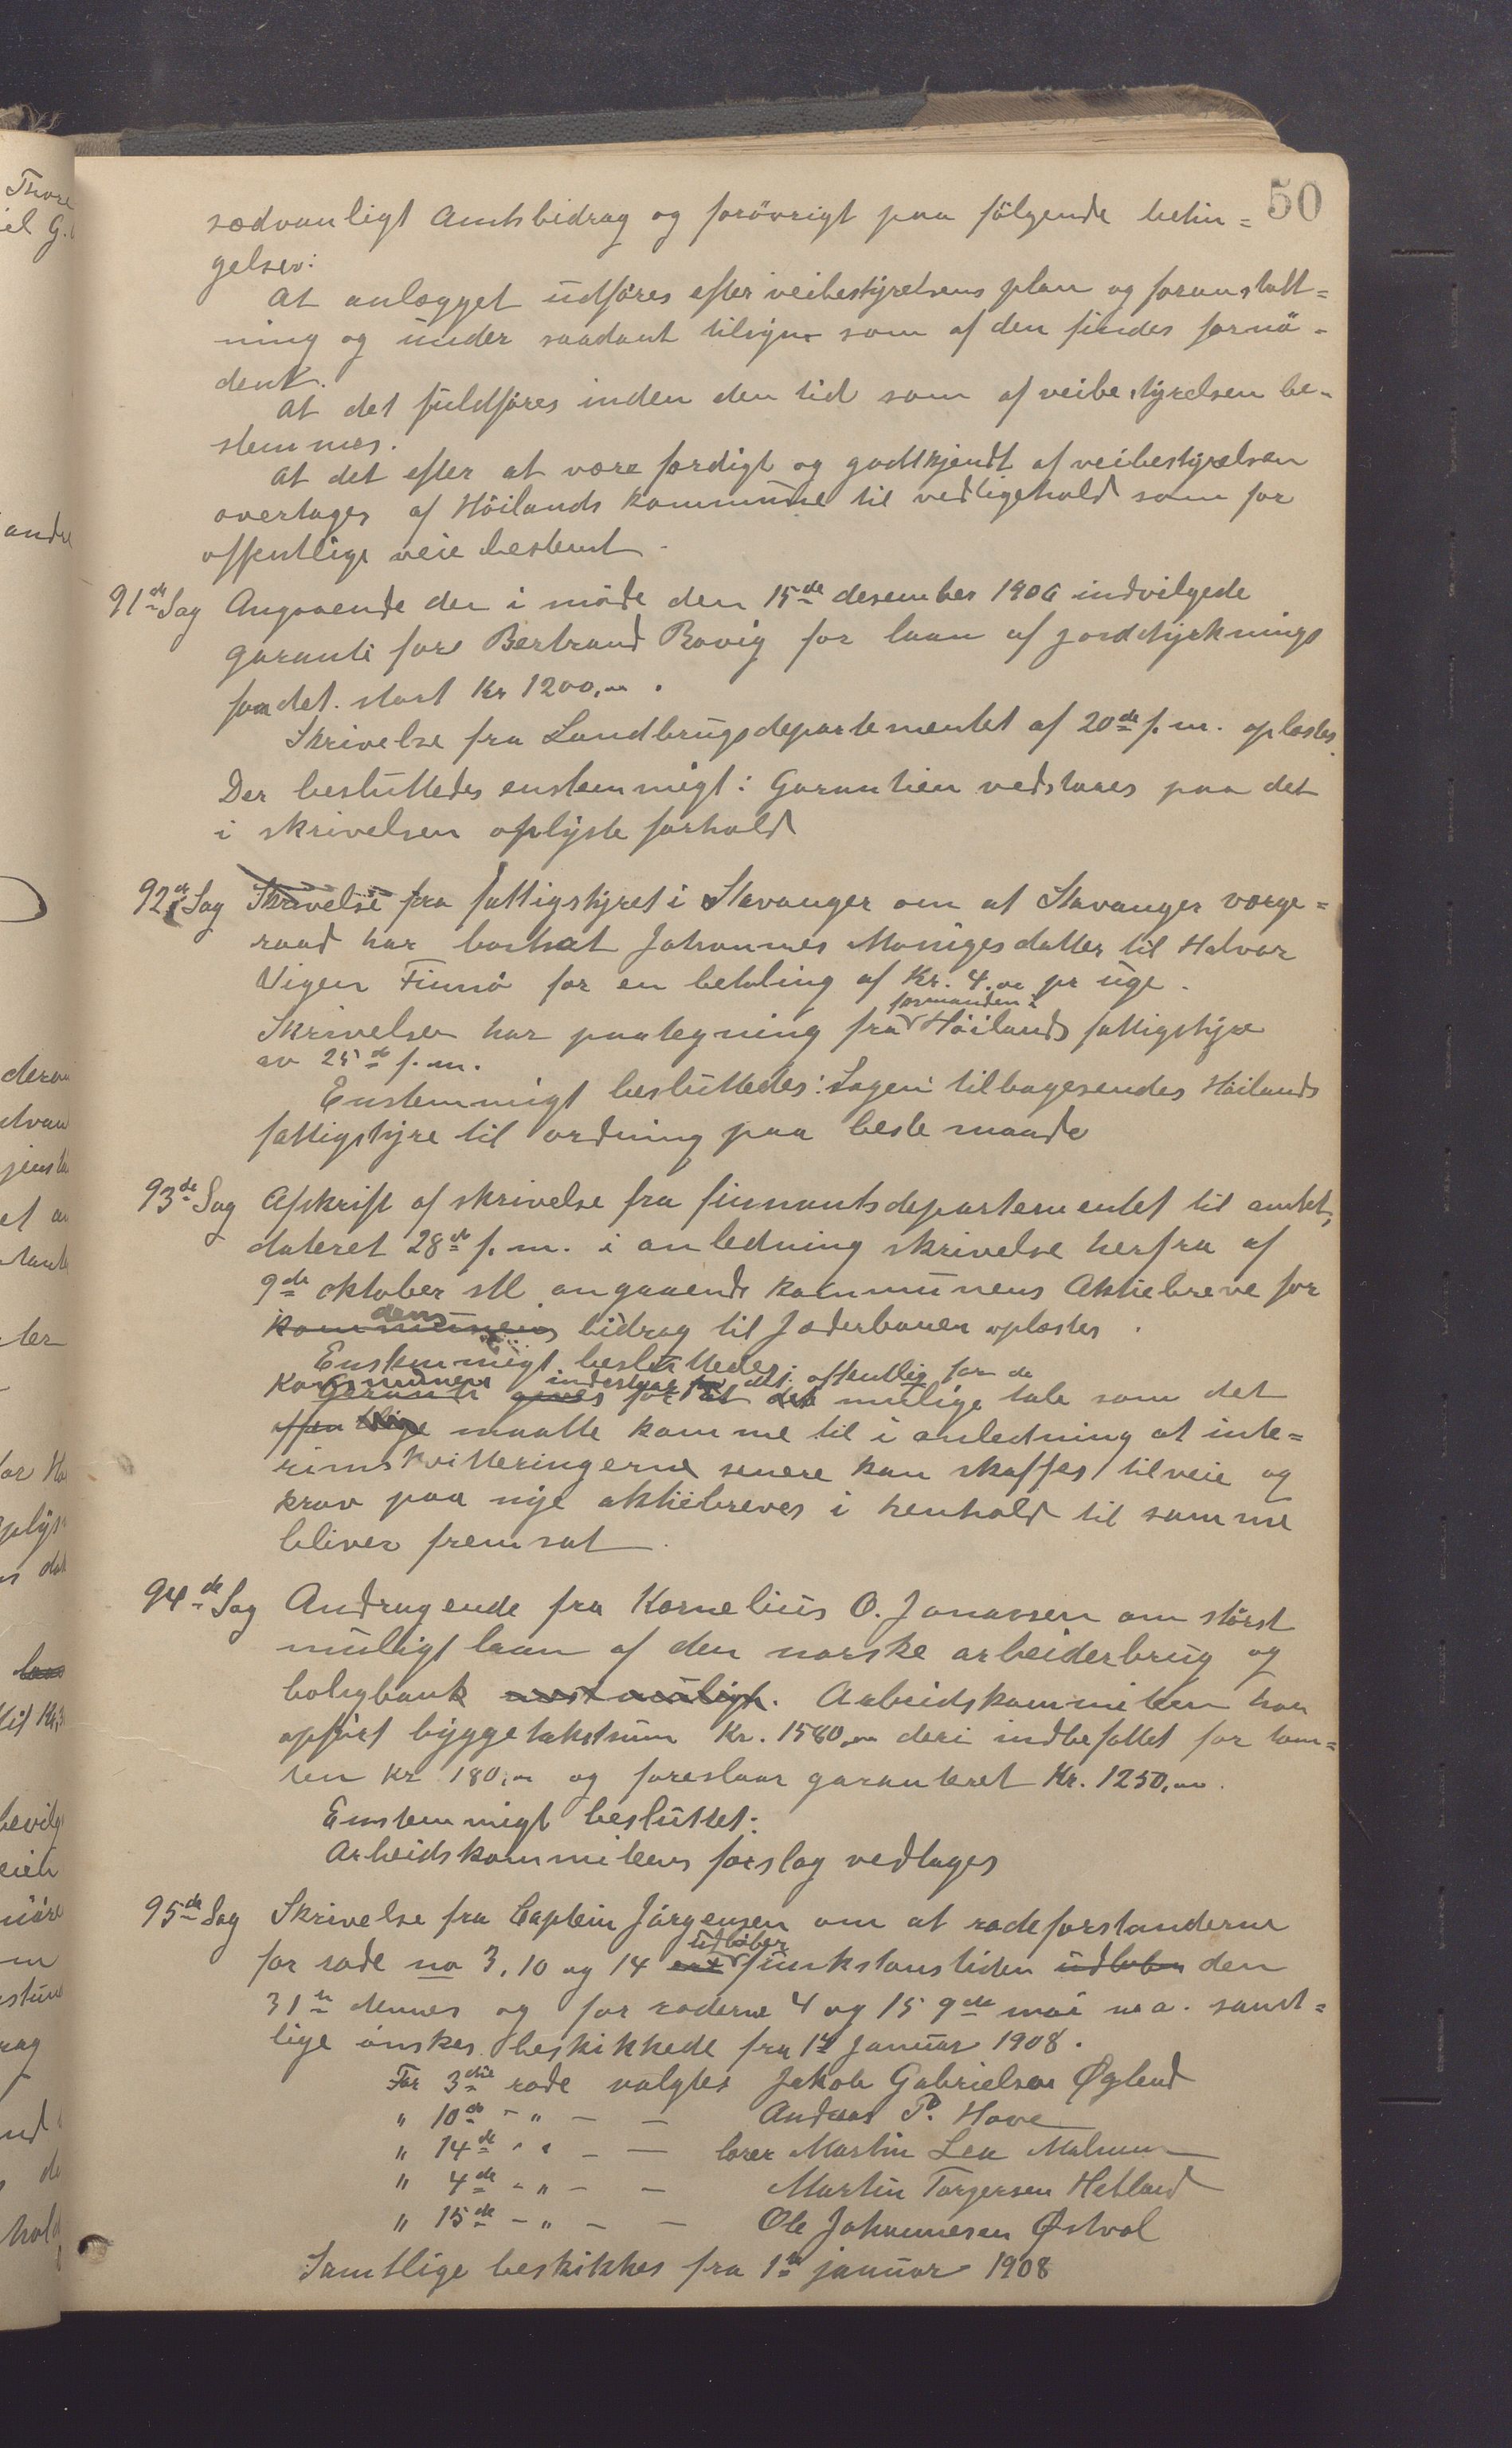 50
sædvanligt Amtsbidrag og forövrigt paa fölgende betin=
gelser:
at anlægget udföres efter veibestyrelsens plan og foranstalt=
ning og under saadant tilsyn som af den findes fornö=
dent.
at det fuldföres inden den tid som af veibestyrelsen be=
stemmes.
at det efter at være færdigt og godkjendt af veibestyrelsen
overtages af Höilands kommune til vedligehold som for
offentlige veie bestemt.
91de Sag Angaaende den i möde den 15de desember 1906 indvilgede
garanti fore Bertrand Rovig for laan af jorddyrknings
fondet. stort Kr 1200,00.
Skrivelse fra Landbrugsdepartementet af 20de f.m. oplæstes.
Der besluttedes enstemmigt: Garantien vedstaaes paa det
i skrivelsen oplyste forhold
92de Sag Skrivelse fra fattigstyret i Stavanger om at Stavanger værge=
raad har bortsat Johannes Moniges datter til Halvor
Vigen Finnö for en betaling af Kr. 4.00 pr uge.
formanden i
Skrivelsen har paategning fra Höilands fattigstyre
av 25de f.m.
Enstemmigt besluttedes: Sagen tilbagesendes Höilands
fattigstyre til ordning paa beste maade
93de Sag Afskrift af skrivelse fra finnantsdepartementet til amtet,
dateret 28de f.m. i anledning skrivelse herfra af
9de oktober stl. angaaende kommunens Aktiebreve for
dens
kommunens bidrag til Jæderbanen oplæstes.
Enstemmigt besluttedes:
Kommunen indestaar for det offentlig for de
Garanti gives for at det mulige tab som det
offentlige maatte komme til i anledning at inte=
rimskvitteringerne senere kan skaffes tilveie og
krav paa nye aktiebreves i henhold til samme
bliver fremsat.
94de Sag Andragende fra Kornelius O. Jonassen om störst
muligt laan af den norske arbeiderbrug og
boligbank mest muligt. Arbeidskommiteen har
opfört byggetakstsum Kr. 1580,00 deri indbefattet for tom=
ten Kr 180,00 og foreslaar garanteret Kr. 1250,00.
Enstemmigt besluttet:
Arbeidskommiteens forslag vedtages
95de Sag Skrivelse fra Captein Jörgensen om at rodeforstanderne
udlöber
for rode no 3, 10 og 14 ere funkstionstiden udløben den
31te dennes og for roderne 4 og 15 9de mai n.a. samt=
lige önskes beskikkede fra 1te Januar 1908.
For 3die rode valgtes Jakob Gabrielsen Øglend
" 10de - " - - Andreas P. Hove
" 14de - " - - lærer Martin Lea Malmum
" 4de - " - - Martin Torgersen Hetland
" 15de - " - - Ole Johannesen Østvol
Samtlige beskikkes fra 1te januar 1908